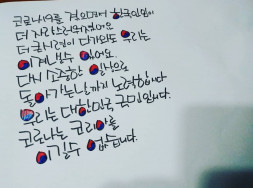 코로나19를 겪으면서 한국인임이
더 자랑스러워졌어요
더 큰 시련이 다가와도 우리는
이겨낼 수 있어요.
다시 소중한 일상으로
돌아가는 날까지 노력합시다
우리는 대한민국 국민입니다.
코로나는 코리아를
이길 수 없습니다.